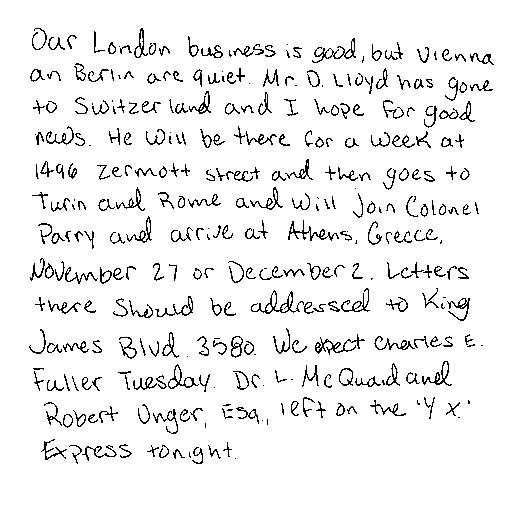 Our London business is good, but Vienna
an Berlin are quiet. Mr. D. Lloyd has gone
to Switzerland and I hope for good
news. He will be there for a week at
1496 Zermott street and then goes to
Turin and Rome and will join Colonel
Parry and arrive at Athens, Greece,
November 27 or December 2. Letters
there should be addressed to King
James Blvd. 3580. We expect Charles E.
Fuller Tuesday. Dr. L. McQuaid and
Robert Unger, Esq., left on the 'Y X.'
Express tonight.